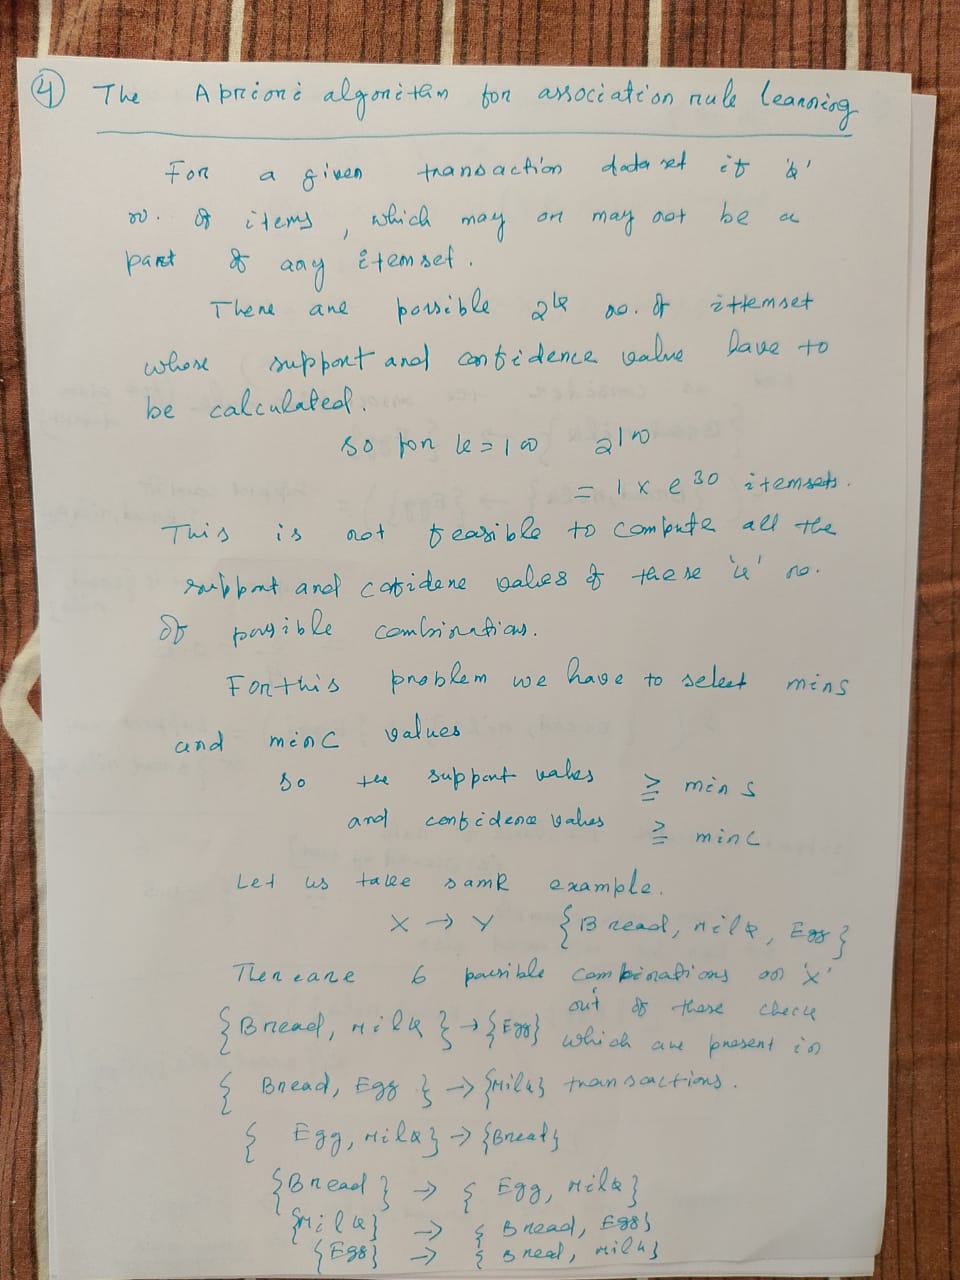 4 The Apriori algoritam for association rule learning
For a given transaction data set if 'k'
no. of items, which may or may not be a
part of any itemset.
There are possible 2^k no. of ittemset
whose support and confidence value have to
be calculated.
so for k = 100 2^100
= 1 x e^30 itemsets.
This is not feasible to compute all the
support and cofidene values of these 'k' no.
of possible combinations.
For this problem we have to select mins
and minC values
so the support values ≥ mins
and confidence values ≥ minC
Let us take same example.
X → Y {Bread, Milk, Egg}
There are 6 possible combinations on 'X'
out of these check
{Bread, Milk} → {Egg} which are present in
{Bread, Egg} → {Milk} transactions.
{Egg, Milk} → {Bread}
{Bread} → {Egg, Milk}
{Milk} → {Bread, Egg}
{Egg} → {Bread, Milk}